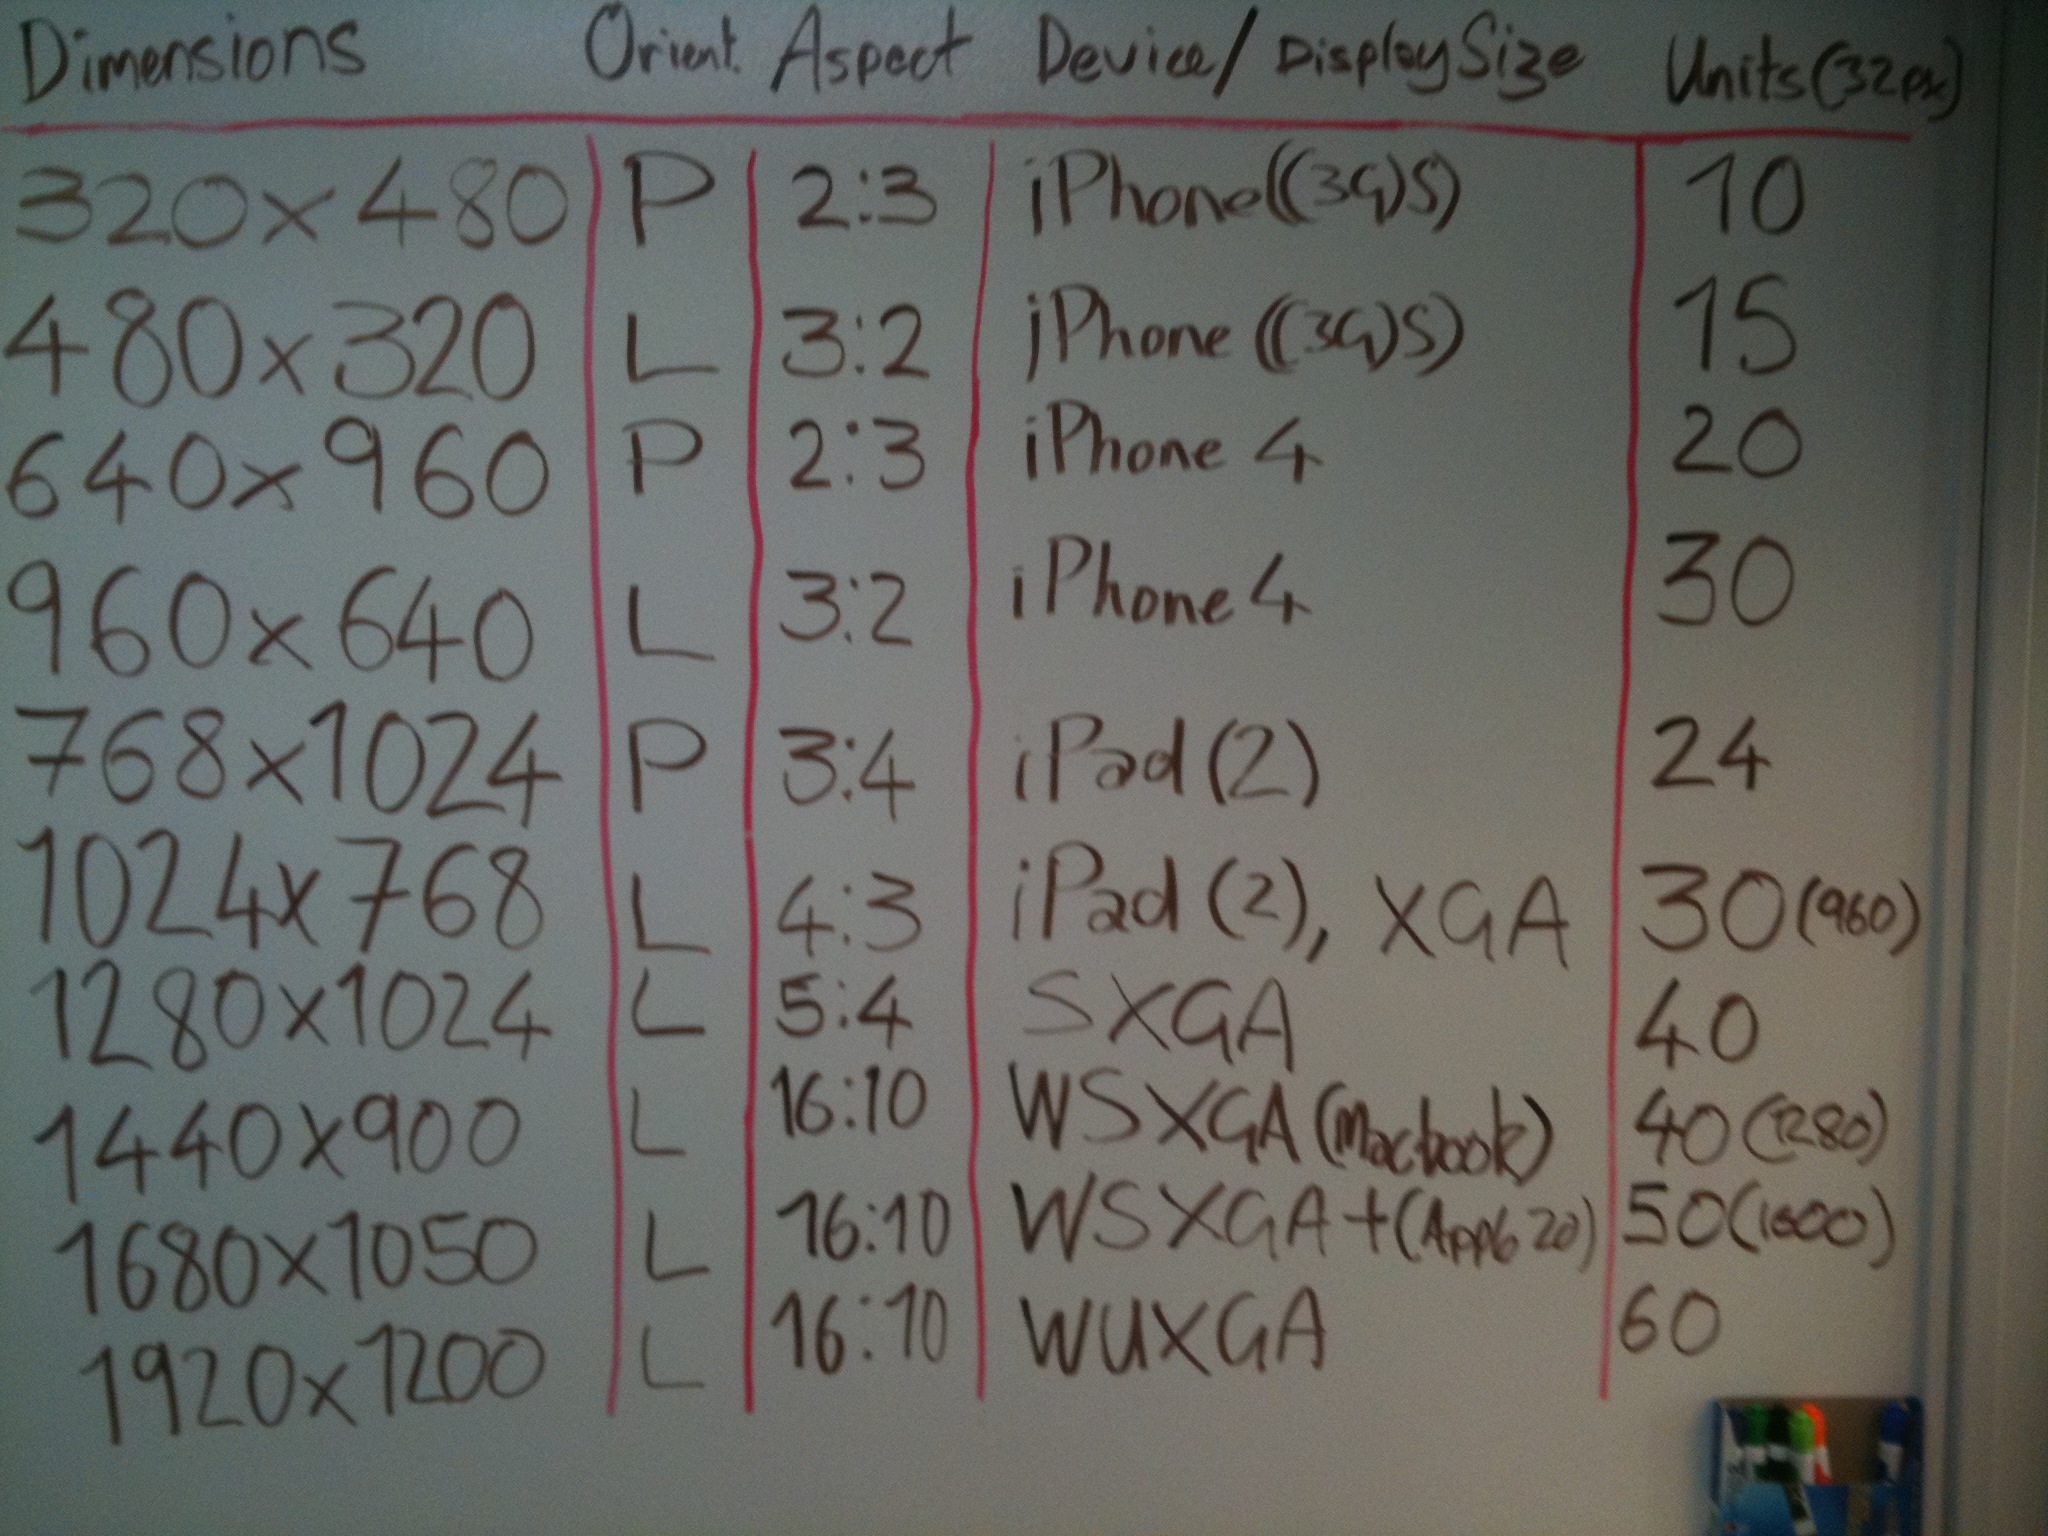 Dimensions Orient. Aspect Device/DisplaySize Units(32px)
320x480 P 2:3 iPhone((3G)S) 10
480x320 L 3:2 iPhone((3G)S) 15
640x960 P 2:3 iPhone 4 20
960x640 L 3:2 iPhone 4 30
768x1024 P 3:4 iPad(2) 24
1024x768 L 4:3 iPad(2), XGA 30(960)
1280x1024 L 5:4 SXGA 40
1440x900 L 16:10 WSXGA(Macbook) 40(1280)
1680x1050 L 16:10 WSXGA+(Apple 20) 50(1600)
1920x1200 L 16:10 WUXGA 60